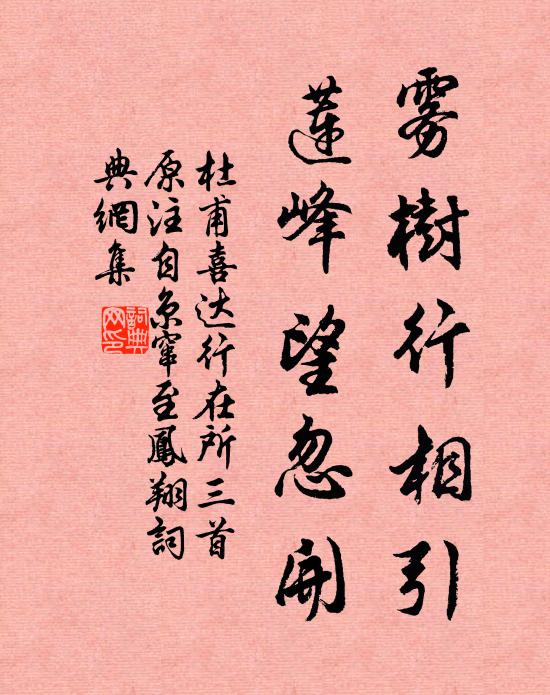 雾樹行相引
蓮峰望忽開
杜甫喜达行在所三首
原注自京窜至鳳翔詞
典網集
詞典网印